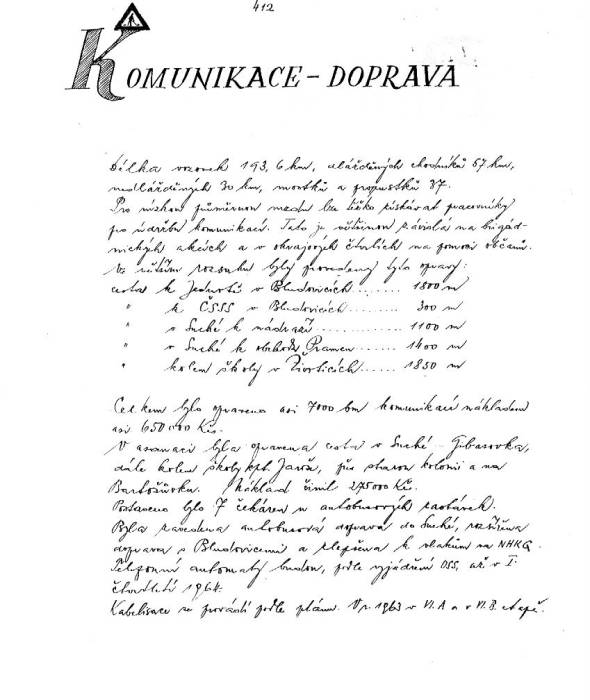 412
KOMUNIKACE - DOPRAVA
Délka vozovek 193,6 km, dlážděných chodníků 57 km,
nedlážděných 30 km, mostků a propustků 37.
Pro nízkou průměrnou mzdu lze těžko získávat pracovníky
pro údržbu komunikací. Tato je většinou závislá na brigád-
nických akcích a v okrajových čtvrtích na pomoci občanů.
Ve větším rozsahu byly provedeny tyto opravy:
cesta k Jednotě v Bludovicích ........ 1800 m
" k ČSSS v Bludovicích ...... 300 m
" v Suché k nádraží ........... 1100 m
" v Suché k obchodu Pramen ...... 1400 m
" kolem školy v Životicích ..... 1850 m
Celkem bylo opraveno asi 7000 bm komunikací nákladem
asi 650 000 Kčs.
V asanaci byla opravena cesta v Suché - Gibasovka,
dále kolem školy kpt. Jaroše, přes starou kolonii a na
Bartošůvku. Náklad činil 275 000 Kčs.
Postaveno bylo 7 čekáren u autobusových zastávek.
Byla zavedena autobusová doprava do Suché, rozšířena
doprava s Bludovicemi a zlepšena k vlakům na NHKG.
Telefonní automaty budou, podle vyjádření OSS, až v I.
čtvrtletí 1964.
Kabelisace se provádí podle plánu. V r. 1963 v VI. A a v VI. B. etapě.